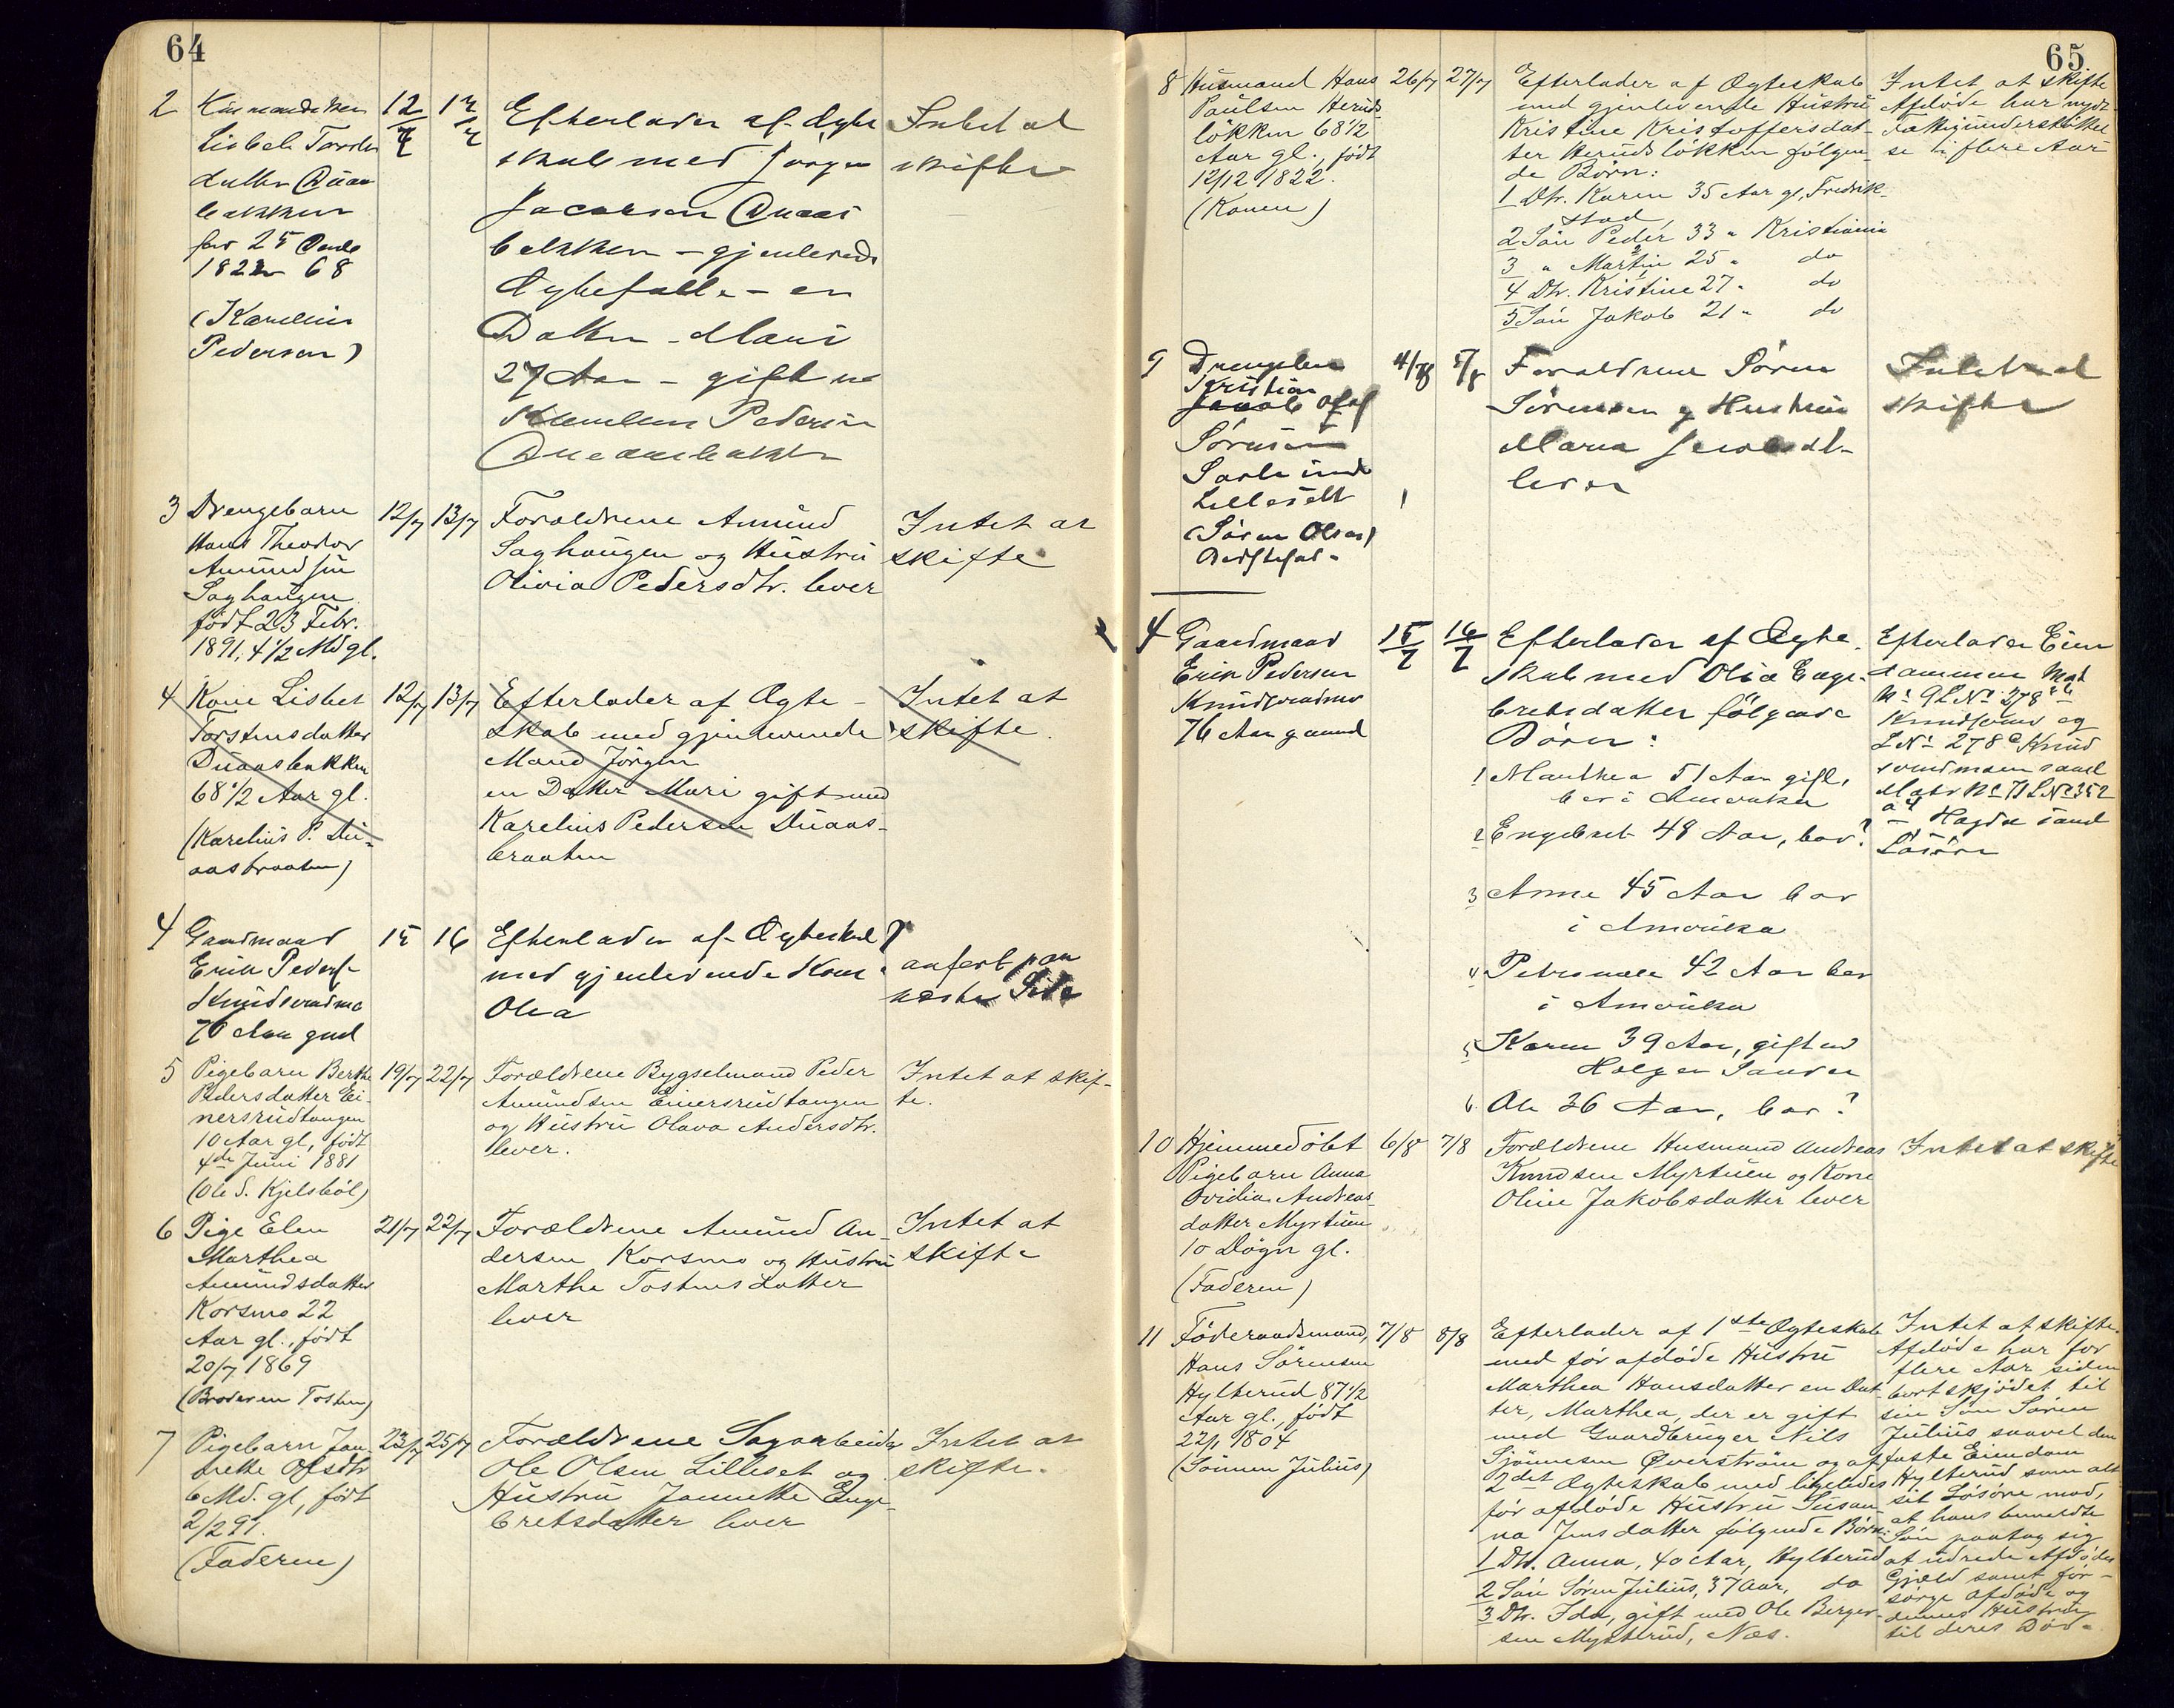 64
2 Husmandskone 12/7 13/7 Efterlader af Ægte Intet at
Lisbeth Torsten skab med Jørgen skifte
datter Duaas Jacobsen Duaas
bakken bakken – gjenlevende
født 25 Decbr Ægtefælle – en
1822 68 Datter – Mari
(Karelius 27 Aar – gift m
Pedersen) Karelius Pedersen
Duaasbakken
3 Drengebarn 12/7 13/7 Forældrene Amund Intet at
Hans Theodor Saghaugen og Hustru skifte
Amundsen Olivia Pedersdtr. lever
Saghaugen
født 23 Febr.
1891, 4 1/2 Md gl.
4 Kone Lisbet 12/7 13/7 Efterlader af Ægte- Intet at
Torstensdatter skab med gjenlevende skifte.
Duaasbakken Mand Jörgen
68 1/2 Aar gl. en Datter Mari gift med
(Karelius P. Du- Karelius Pedersen Duaas-
aasbraaten) braaten
4 Gaardmand 15 16 Efterlader af Ægteskab ?
Erik Peders- med gjenlevende Kone anført paa
Knudsrudmo Olea næste Side
76 Aar gml
5 Pigebarn Berthe 19/7 22/7 Forældrene Bygselmand Peder Intet at skif-
Pedersdatter Ei- Amundsen Einersrudtangen te.
nersrudtangen og Hustru Olava Andersdtr.
10 Aar gl, født lever.
4de Juni 1881
(Ole S. Kjelsböl)
6 Pige Elen 21/7 22/7 Forældrene Amund An- Intet at
Marthea dersen Korsmo og Hustru skifte
Amundsdatter Marthe Tostensdatter
Korsmo 22 lever
Aar gl., født
20/7 1869
(Broderen Tosten)
7 Pigebarn Jan- 23/7 25/7 Forældrene Sagarbeider Intet at
nette Olsdtr Ole Olsen Lilleset og skifte.
6 Md. gl, født Hustru Jannette Enge-
2/2 91. bretsdatter lever
(Faderen)
65
8 Husmand Hans 26/7 27/7 Efterlader af Ægteskab Intet at skifte
Paulsen Heruds med gjenlevende Hustru Afdöde har nydt
lökken 68 1/2 Kristine Kristoffersdat- Fattigunderstöttel
Aar gl., født ter Herudslökken fölgen- se i flere Aar
12/12 1822. de Börn:
(Konen) 1 Dtr. Karen 35 Aar gl, Fredrik-
stad
2 Sön Peder, 33 " Kristiania
3 " Martin, 25 " do
4 Dtr. Kristine 27 " do
5 Sön Jakob 21 " do
9 Drengebarn 4/8 5/8 Forældrene Søren Intet at
Kristian Sørensen og Hustru skifte
Jacob Olaf Maria Jacobsdt-
Sørensen lever
Lilleseth
(Søren Olsen)
Bedstefar
4 Gaardmand 15/7 16/7 Efterlader af Ægte- Efterlader Eien
Erik Pedersen skab med Olea Enge- dommen Mat
Knudsrudmo bretsdatter fölgende N. 9 L No 278
76 Aar gammel Börn: Knudsrud og
1 Marthea 51 Aar gift, L No 278 Knud
bor i Amerika srudmoen samt
2 Engebret 48 Aar, bor? Matr No 71 L No 352
3 Anne 45 Aar bor samt
i Amerika Løsøre
4 Petronelle 42 Aar bor
i Amerika
5 Karen 39 Aar, gift m
Holger Sander
6. Ole 36 Aar, bor?
10 Hjemmedöbt 6/8 7/8 Forældrene Husmand Andreas Intet at skifte
Pigebarn Anna Knudsen Myrtuen og Kone
Ovidia Andreas- Oline Jakobsdatter lever
datter Myrtuen
10 Dögn gl.
(Faderen)
11 Föderaadsmand, 7/8 8/8 Efterlader af 1ste Ægteskab Intet at skifte.
Hans Sörensen med för afdöde Hustru Afdöde har for
Hylterud 87 1/2 Marthea Hansdatter en Dat- flere Aar siden
Aar gl., født ter, Marthea, der er gift bortskjödet til
22/1 1804 med Gaardbruger Nils sin Sön Sören
(Sönnen Julius) Sjönnesen Overström og af Julius saavel den
2det Ægteskab med ligeledes faste Eiendom
för afdöde Hustru Susan- Hylterud som alt
na Jensdatter fölgende Börn: sit Lösöre mod,
1 Dtr. Anna, 40 Aar, Hylterud at hans bemeldte
2 Sön Sören Julius, 37 Aar, do Sön paatog sig
3 Dtr. Ida, gift med Ole Berger- at udrede Afdödes
sen Mykterud, Næs. Gjæld samt for-
sörge afdöde og
dennes Hustru
til deres Död.